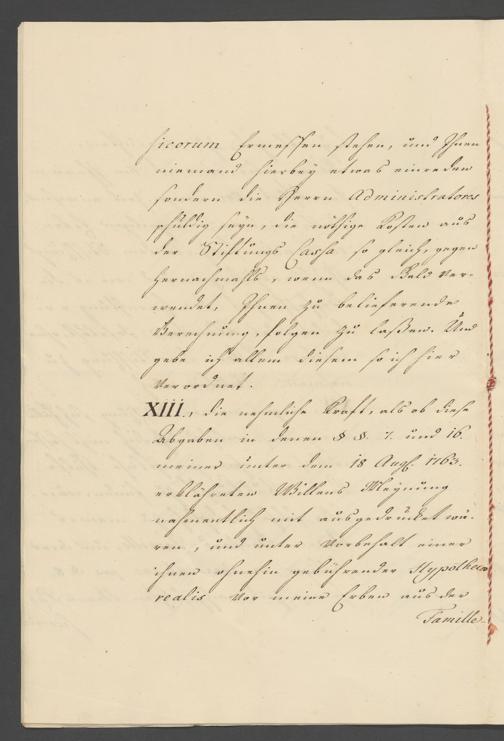 sicorum Ermessen stehen, und Ihnen
niemand hierbey etwas einreden
sondern die Herrn Administratores
schuldig seyn, die nöthige Kosten aus
der Stiftungs Cassa so gleich, gegen
hernachmahls, wenn das Geld ver-
wendet, Ihnen zu beliefernde
Berechnung, folgen zu laßen. Und
gebe ich allem diesem so ich hier
verordnet.
XIII., die nehmliche Kraft, als ob diese
Abgaben in denen § §. 7. und 16.
meiner unter dem 18 Aug. 1763.
erklährten Willens Meynung
nahmentlich mit ausgedrücket wä-
ren, und unter Vorbehalt einer
ihnen ohnehin gebührender Hypothecae
realis vor meine Erben aus der
Famille